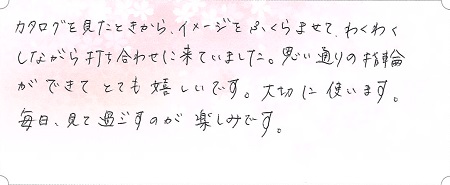 カタログを見たときから、イメージをふくらませて、わくわく
しながら打ち合わせに来ていました。思い通りの指輪
ができて とても 嬉しいです。大切に 使います。
毎日、見て 過ごすのが 楽しみです。